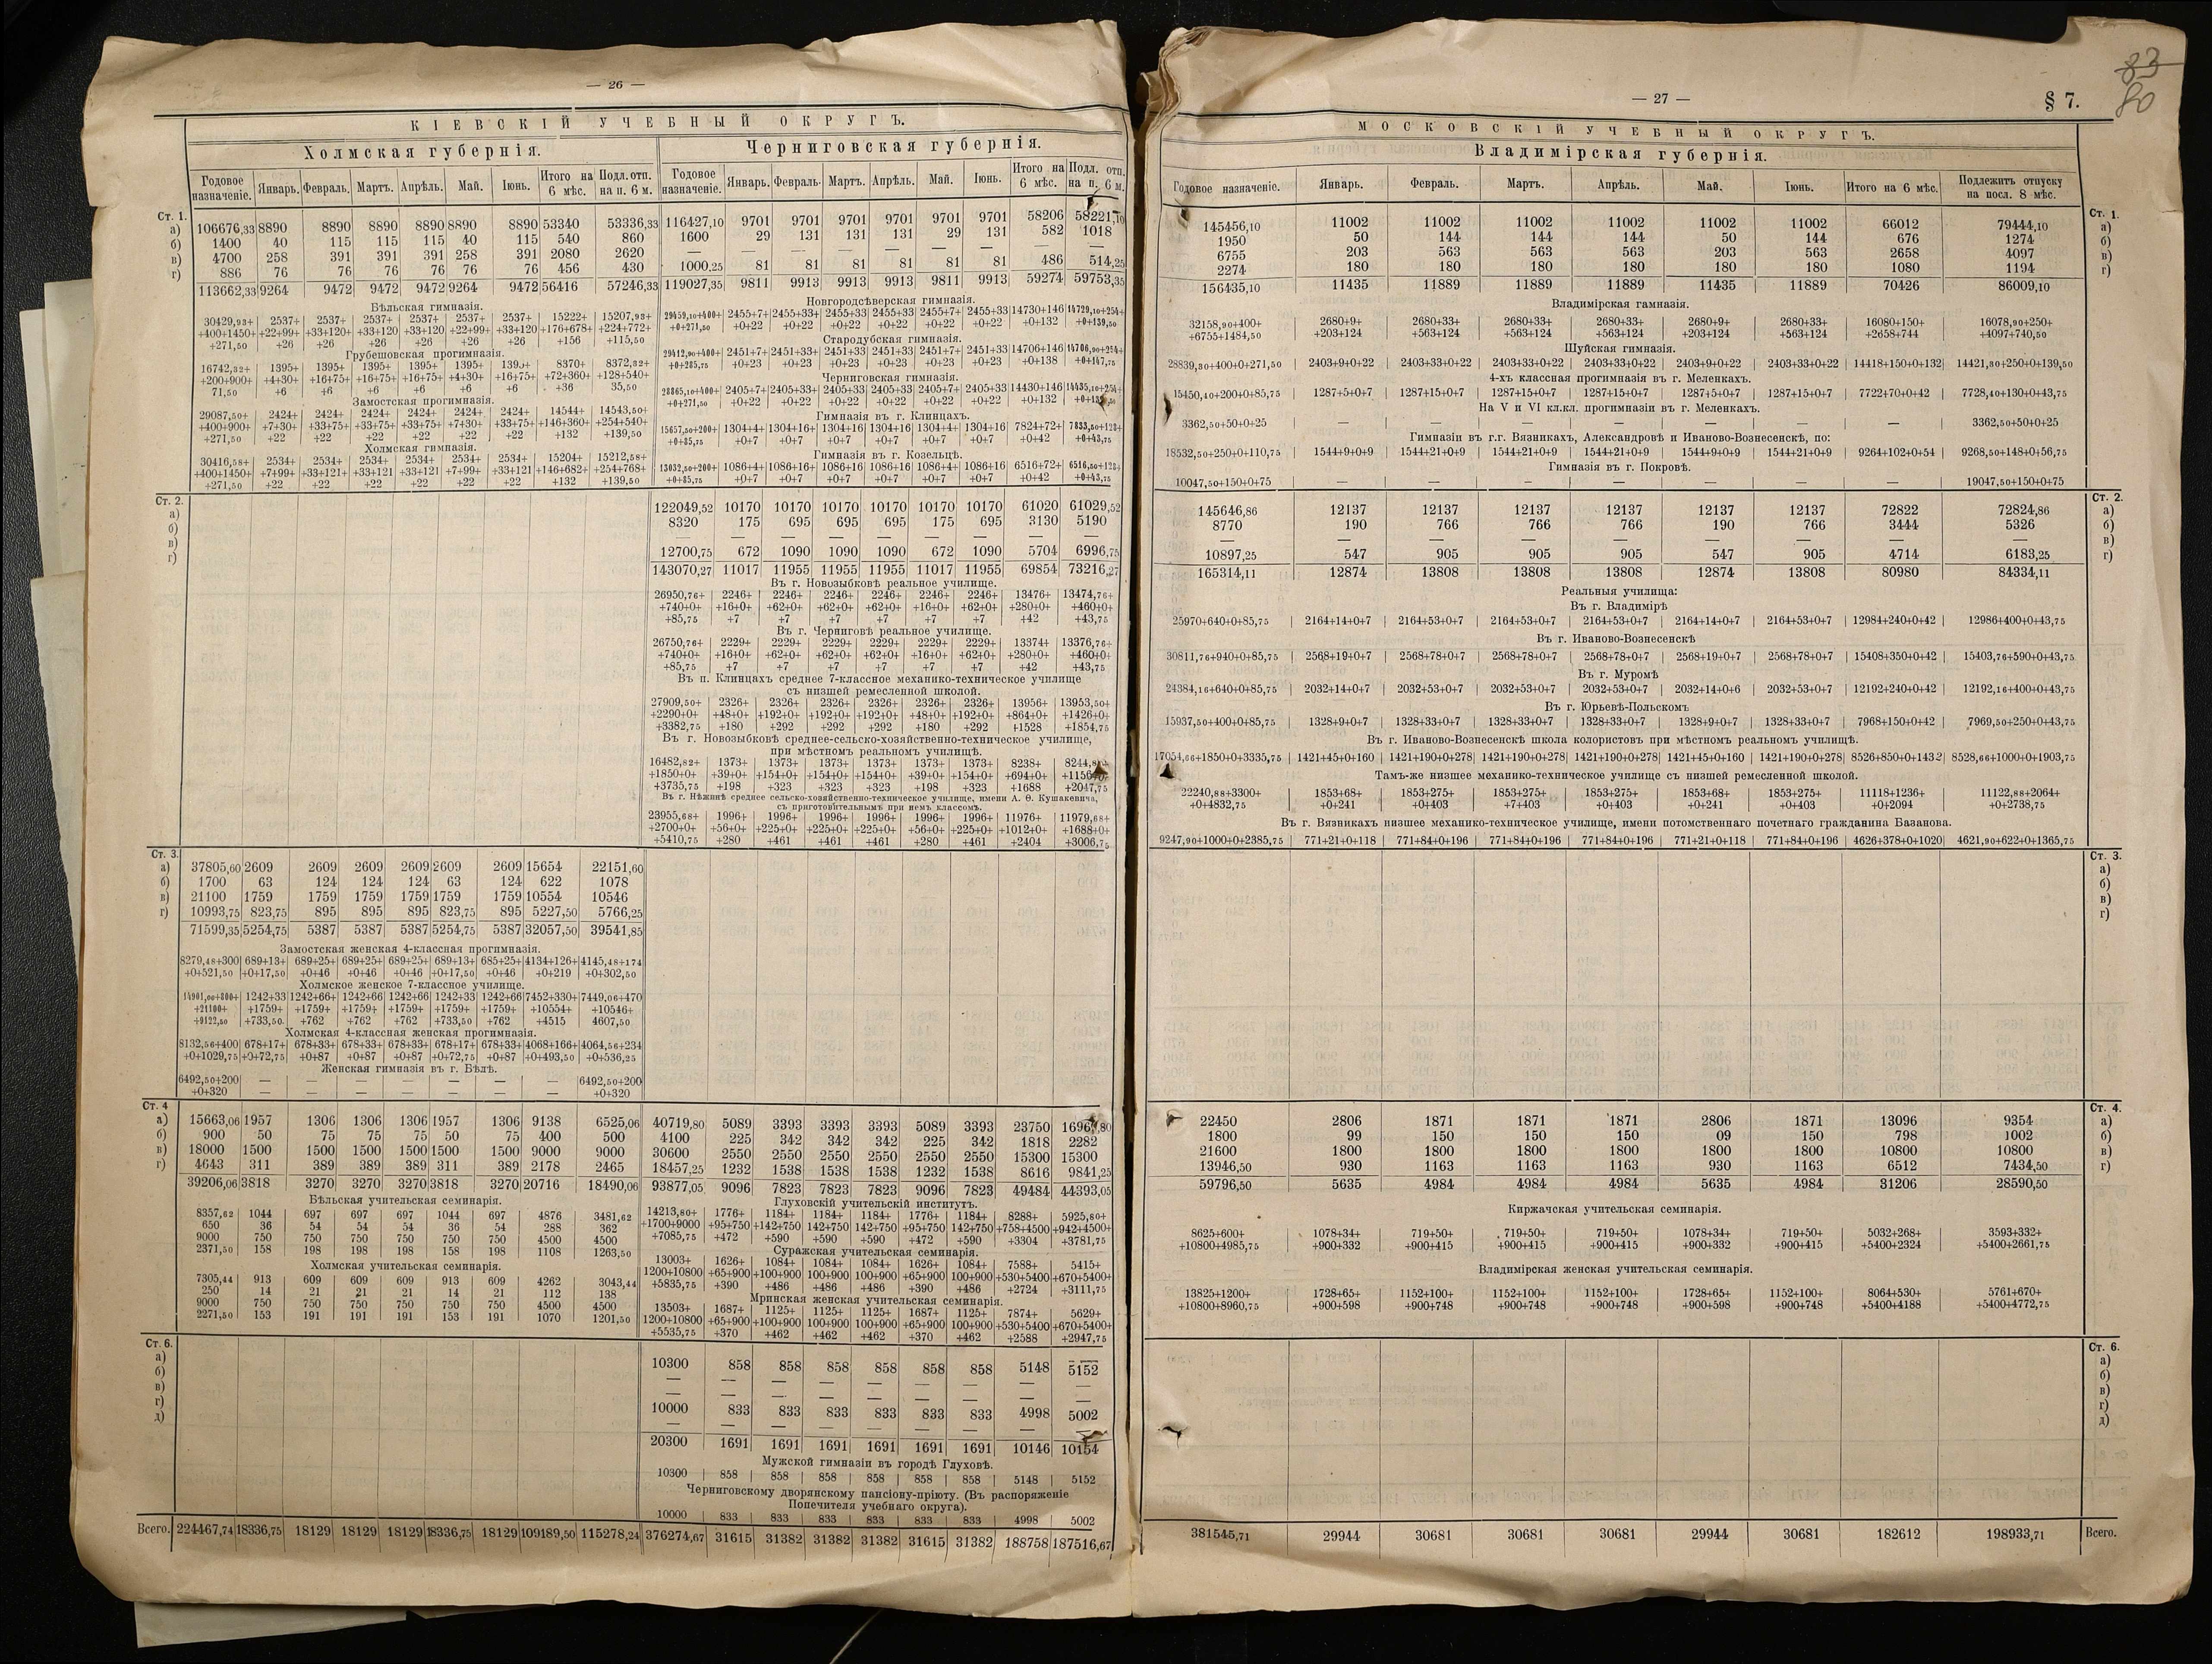 — 26 —
КІЕВСКІЙ УЧЕБНЫЙ ОКРУГЪ.
Холмская губернія.
Черниговская губернія.
Годовое назначеніе. Январь. Февраль. Мартъ. Апрѣль. Май. Іюнь. Итого на 6 мѣс. Подл. отп. на п. 6 м.
Годовое назначеніе. Январь. Февраль. Мартъ. Апрѣль. Май. Іюнь. Итого на 6 мѣс. Подл. отп. на п. 6 м.
Ст. 1.
а) 106676,33 8890 8890 8890 8890 8890 8890 53340 53336,33 116427,10 9701 9701 9701 9701 9701 9701 58206 58221,10
б) 1400 40 115 115 115 40 115 540 860 1600 29 131 131 131 29 131 582 1018
в) 4700 258 391 391 391 258 391 2080 2620 — — — — — — — — —
г) 886 76 76 76 76 76 76 456 430 1000,25 81 81 81 81 81 81 486 514,25
113662,33 9264 9472 9472 9472 9264 9472 56416 57246,33 119027,35 9811 9913 9913 9913 9811 9913 59274 59753,35
Бѣльская гимназія.
30429,93+ 2537+ 2537+ 2537+ 2537+ 2537+ 2537+ 15222+ 15207,93+
+400+1450+ +22+99+ +33+120+ +33+120 +33+120 +22+99+ +33+120 +176+678+ +224+772+
+271,50 +26 +26 +26 +26 +26 +26 +156 +115,50
Грубешовская прогимназія.
16742,32+ 1395+ 1395+ 1395+ 1395+ 1395+ 8370+ 8372,32+
+200+900+ +4+30+ +16+75+ +16+75+ +16+75+ +4+30+ +16+75+ +72+360+ +128+540+
71,50 +6 +6 +6 +6 +6 +6 +36 35,50
Замостская прогимназія.
29087,50+ 2424+ 2424+ 2424+ 2424+ 2424+ 2424+ 14544+ 14543,50+
+400+900+ +7+30+ +33+75+ +33+75+ +33+75+ +7+30+ +33+75+ +146+360+ +254+540+
+271,50 +22 +22 +22 +22 +22 +22 +132 +139,50
Холмская гимназія.
30416,58+ 2534+ 2534+ 2534+ 2534+ 2534+ 2534+ 15204+ 15212,58+
+400+1450+ +7+99+ +33+121+ +33+121 +33+121 +7+99+ +33+121 +146+682+ +254+768+
+271,50 +22 +22 +22 +22 +22 +22 +132 +139,50
Новгородсѣверская гимназія.
29459,10+400+ 2455+7+ 2455+33+ 2455+33 2455+33 2455+7+ 2455+33 14730+146 14729,10+254+
+0+271,50 +0+22 +0+22 +0+22 +0+22 +0+22 +0+22 +0+132 +0+139,50
Стародубская гимназія.
29412,90+400+ 2451+7+ 2451+33+ 2451+33 2451+33 2451+7+ 2451+33 14706+146 14706,90+254+
+0+285,75 +0+23 +0+23 +0+23 +0+23 +0+23 +0+23 +0+138 +0+147,75
Черниговская гимназія.
28865,10+400+ 2405+7+ 2405+33+ 2405+33 2405+33 2405+7+ 2405+33 14430+146 14435,10+254+
+0+271,50 +0+22 +0+22 +0+22 +0+22 +0+22 +0+22 +0+132
Гимназія въ г. Клинцахъ.
15657,50+200+ 1304+4+ 1304+16+ 1304+16 1304+16 1304+4+ 1304+16 7824+72+ 7833,50+128+
+0+85,75 +0+7 +0+7 +0+7 +0+7 +0+7 +0+7 +0+42 +0+43,75
Гимназія въ г. Козельцѣ.
13032,50+200+ 1086+4+ 1086+16+ 1086+16 1086+16 1086+4+ 1086+16 6516+72+ 6516,50+128+
+0+85,75 +0+7 +0+7 +0+7 +0+7 +0+7 +0+7 +0+42 +0+43,75
Ст. 2.
а) 122049,52 10170 10170 10170 10170 10170 10170 61020 61029,52
б) 8320 175 695 695 695 175 695 3130 5190
в) — — — — — — — — —
г) 12700,75 672 1090 1090 1090 672 1090 5704 6996,75
143070,27 11017 11955 11955 11955 11017 11955 69854 73216,27
Въ г. Новозыбковѣ реальное училище.
26950,76+ 2246+ 2246+ 2246+ 2246+ 2246+ 2246+ 13476+ 13474,76+
+740+0+ +16+0+ +62+0+ +62+0+ +62+0+ +16+0+ +62+0+ +280+0+ +460+0+
+85,75 +7 +7 +7 +7 +7 +7 +42 +43,75
Въ г. Черниговѣ реальное училище.
26750,76+ 2229+ 2229+ 2229+ 2229+ 2229+ 2229+ 13374+ 13376,76+
+740+0+ +16+0+ +62+0+ +62+0+ +62+0+ +16+0+ +62+0+ +280+0+ +460+0+
+85,75 +7 +7 +7 +7 +7 +7 +42 +43,75
Въ п. Клинцахъ среднее 7-классное механико-техническое училище
съ низшей ремесленной школой.
27909,50+ 2326+ 2326+ 2326+ 2326+ 2326+ 2326+ 13956+ 13953,50+
+2290+0+ +48+0+ +192+0+ +192+0+ +192+0+ +48+0+ +192+0+ +864+0+ +1426+0+
+3382,75 +180 +292 +292 +292 +180 +292 +1528 +1854,75
Въ г. Новозыбковѣ среднее-сельско-хозяйственно-техническое училище,
при мѣстномъ реальномъ училищѣ.
16482,82+ 1373+ 1373+ 1373+ 1373+ 1373+ 1373+ 8238+
+1850+0+ +39+0+ +154+0+ +154+0+ +154+0+ +39+0+ +154+0+ +694+0+
+3735,75 +198 +323 +323 +323 +198 +323 +1688 +2047,75
Въ г. Нѣжинѣ среднее сельско-хозяйственно-техническое училище, имени А. Ѳ. Кушакевича,
съ приготовительнымъ при немъ классомъ.
23955,68+ 1996+ 1996+ 1996+ 1996+ 1996+ 1996+ 11976+ 11979,68+
+2700+0+ +56+0+ +225+0+ +225+0+ +225+0+ +56+0+ +225+0+ +1012+0+ +1688+0+
+5410,75 +280 +461 +461 +461 +280 +461 +2404 +3006,75
Ст. 3.
а) 37805,60 2609 2609 2609 2609 2609 2609 15654 22151,60
б) 1700 63 124 124 124 63 124 622 1078
в) 21100 1759 1759 1759 1759 1759 1759 10554 10546
г) 10993,75 823,75 895 895 895 823,75 895 5227,50 5766,25
71599,35 5254,75 5387 5387 5387 5254,75 5387 32057,50 39541,85
Замостская женская 4-классная прогимназія.
8279,48+300 689+13+ 689+25+ 689+25+ 689+25+ 689+13+ 685+25+ 4134+126+ 4145,48+174
+0+521,50 +0+17,50 +0+46 +0+46 +0+46 +0+17,50 +0+46 +0+219 +0+302,50
Холмское женское 7-классное училище.
14901,06+800+ 1242+33 1242+66+ 1242+66 1242+66 1242+33 1242+66 7452+330+ 7449,06+470
+21100+ +1759+ +1759+ +1759+ +1759+ +1759+ +1759+ +10554+ +10546+
+9122,50 +733,50. +762 +762 +762 +733,50 +762 +4515 4607,50
Холмская 4-классная женская прогимназія.
8132,56+400 678+17+ 678+33+ 678+33+ 678+33+ 678+17+ 678+33+ 4068+166+ 4064,56+234
+0+1029,75 +0+72,75 +0+87 +0+87 +0+87 +0+72,75 +0+87 +0+493,50 +0+536,25
Женская гимназія въ г. Бѣлѣ.
6492,50+200 — — — — — — — 6492,50+200
+0+320 +0+320
Ст. 4
а) 15663,06 1957 1306 1306 1306 1957 1306 9138 6525,06 40719,80 5089 3393 3393 3393 5089 3393 23750
б) 900 50 75 75 75 50 75 400 500 4100 225 342 342 342 225 342 1818 2282
в) 18000 1500 1500 1500 1500 1500 1500 9000 9000 30600 2550 2550 2550 2550 2550 2550 15300 15300
г) 4643 311 389 389 389 311 389 2178 2465 18457,25 1232 1538 1538 1538 1232 1538 8616 9841,25
39206,06 3818 3270 3270 3270 3818 3270 20716 18490,06 93877,05 9096 7823 7823 7823 9096 7823 49484 44393,05
Бѣльская учительская семинарія.
8357,62 1044 697 697 697 1044 697 4876 3481,62
650 36 54 54 54 36 54 288 362
9000 750 750 750 750 750 750 4500 4500
2371,50 158 198 198 198 158 198 1108 1263,50
Холмская учительская семинарія.
7305,44 913 609 609 609 913 609 4262 3043,44
250 14 21 21 21 14 21 112 138
9000 750 750 750 750 750 750 4500 4500
2271,50 153 191 191 191 153 191 1070 1201,50
Глуховскій учительскій институтъ.
14213,80+ 1776+ 1184+ 1184+ 1184+ 1776+ 1184+ 8288+ 5925,80+
+1700+9000 +95+750 +142+750 142+750 142+750 +95+750 142+750 +758+4500 +942+4500+
+7085,75 +472 +590 +590 +590 +472 +590 +3304 +3781,75
Суражская учительская семинарія.
13003+ 1626+ 1084+ 1084+ 1084+ 1626+ 1084+ 7588+ 5415+
1200+10800 +65+900 +100+900 100+900 100+900 +65+900 100+900 +530+5400 +670+5400+
+5835,75 +390 +486 +486 +486 +390 +486 +2724 +3111,75
Мринская женская учительская семинарія.
13503+ 1687+ 1125+ 1125+ 1125+ 1687+ 1125+ 7874+ 5629+
1200+10800 +65+900 +100+900 100+900 100+900 +65+900 100+900 +530+5400 +670+5400+
+5535,75 +370 +462 +462 +462 +370 +462 +2588 +2947,75
Ст. 6.
а) 10300 858 858 858 858 858 858 5148 5152
б) — — — — — — — — —
в) — — — — — — — — —
г) 10000 833 833 833 833 833 833 4998 5002
д) — — — — — — — — —
20300 1691 1691 1691 1691 1691 1691 10146 10154
Мужской гимназіи въ городѣ Глуховѣ.
10300 858 858 858 858 858 858 5148 5152
Черниговскому дворянскому пансіону-пріюту. (Въ распоряженіе
Попечителя учебнаго округа).
10000 833 833 833 833 833 833 4998 5002
Всего. 224467,74 18336,75 18129 18129 18129 18336,75 18129 109189,50 115278,24 376274,67 31615 31382 31382 31382 31615 31382 188758 187516,67
83
80
— 27 —
§ 7.
МОСКОВСКІЙ УЧЕБНЫЙ ОКРУГЪ.
Владимірская губернія.
Годовое назначеніе. Январь. Февраль. Мартъ. Апрѣль. Май. Іюнь. Итого на 6 мѣс. Подлежитъ отпуску на посл. 8 мѣс.
Ст. 1.
145456,10 11002 11002 11002 11002 11002 11002 66012 79444,10 а)
1950 50 144 144 144 50 144 676 1274 б)
6755 203 563 563 563 203 563 2658 4097 в)
2274 180 180 180 180 180 180 1080 1194 г)
156435,10 11435 11889 11889 11889 11435 11889 70426 86009,10
Владимірская гамназія.
32158,90+400+ 2680+9+ 2680+33+ 2680+33+ 2680+33+ 2680+9+ 2680+33+ 16080+150+ 16078,90+250+
+6755+1484,50 +203+124 +563+124 +563+124 +563+124 +203+124 +563+124 +2658+744 +4097+740,50
Шуйская гимназія.
28839,80+400+0+271,50 2403+9+0+22 2403+33+0+22 2403+33+0+22 2403+33+0+22 2403+9+0+22 2403+33+0+22 14418+150+0+132 14421,80+250+0+139,50
4-хъ классная прогимназія въ г. Меленкахъ.
15450,40+200+0+85,75 1287+5+0+7 1287+15+0+7 1287+15+0+7 1287+15+0+7 1287+5+0+7 1287+15+0+7 7722+70+0+42 7728,40+130+0+43,75
На V и VI кл.кл. прогимназіи въ г. Меленкахъ.
3362,50+50+0+25 — — — — — — — 3362,50+50+0+25
Гимназіи въ г.г. Вязникахъ, Александровѣ и Иваново-Вознесенскѣ, по:
18532,50+250+0+110,75 1544+9+0+9 1544+21+0+9 1544+21+0+9 1544+21+0+9 1544+9+0+9 1544+21+0+9 9264+102+0+54 9268,50+148+0+56,75
Гимназія въ г. Покровѣ.
10047,50+150+0+75 — — — — — — — 19047,50+150+0+75
Ст. 2.
145646,86 12137 12137 12137 12137 12137 12137 72822 72824,86 а)
8770 190 766 766 766 190 766 3444 5326 б)
— — — — — — — — — в)
10897,25 547 905 905 905 547 905 4714 6183,25 г)
165314,11 12874 13808 13808 13808 12874 13808 80980 84334,11
Реальныя училища:
Въ г. Владимірѣ
25970+640+0+85,75 2164+14+0+7 2164+53+0+7 2164+53+0+7 2164+53+0+7 2164+14+0+7 2164+53+0+7 12984+240+0+42 12986+400+0+43,75
Въ г. Иваново-Вознесенскѣ
30811,76+940+0+85,75 2568+19+0+7 2568+78+0+7 2568+78+0+7 2568+78+0+7 2568+19+0+7 2568+78+0+7 15408+350+0+42 15403,76+590+0+43,75
Въ г. Муромѣ
24384,16+640+0+85,75 2032+14+0+7 2032+53+0+7 2032+53+0+7 2032+53+0+7 2032+14+0+6 2032+53+0+7 12192+240+0+42 12192,16+400+0+43,75
Въ г. Юрьевѣ-Польскомъ
15937,50+400+0+85,75 1328+9+0+7 1328+33+0+7 1328+33+0+7 1328+33+0+7 1328+9+0+7 1328+33+0+7 7968+150+0+42 7969,50+250+0+43,75
Въ г. Иваново-Вознесенскѣ школа колористовъ при мѣстномъ реальномъ училищѣ.
17054,66+1850+0+3335,75 1421+45+0+160 1421+190+0+278 1421+190+0+278 1421+190+0+278 1421+45+0+160 1421+190+0+278 8526+850+0+1432 8528,66+1000+0+1903,75
Тамъ-же низшее механико-техническое училище съ низшей ремесленной школой.
22240,88+3300+ 1853+68+ 1853+275+ 1853+275+ 1853+275+ 1853+68+ 1853+275+ 11118+1236+ 11122,88+2064+
+0+4832,75 +0+241 +0+403 +7+403 +0+403 +0+241 +0+403 +0+2094 +0+2738,75
Въ г. Вязникахъ низшее механико-техническое училище, имени потомственнаго почетнаго гражданина Базанова.
9247,90+1000+0+2385,75 771+21+0+118 771+84+0+196 771+84+0+196 771+84+0+196 771+21+0+118 771+84+0+196 4626+378+0+1020 4621,90+622+0+1365,75
Ст. 3.
а)
б)
в)
г)
Ст. 4.
22450 2806 1871 1871 1871 2806 1871 13096 9354 а)
1800 99 150 150 150 09 150 798 1002 б)
21600 1800 1800 1800 1800 1800 1800 10800 10800 в)
13946,50 930 1163 1163 1163 930 1163 6512 7434,50 г)
59796,50 5635 4984 4984 4984 5635 4984 31206 28590,50
Киржачская учительская семинарія.
8625+600+ 1078+34+ 719+50+ 719+50+ 719+50+ 1078+34+ 719+50+ 5032+268+ 3593+332+
+10800+4985,75 +900+332 +900+415 +900+415 +900+415 +900+332 +900+415 +5400+2324 +5400+2661,75
Владимірская женская учительская семинарія.
13825+1200+ 1728+65+ 1152+100+ 1152+100+ 1152+100+ 1728+65+ 1152+100+ 8064+530+ 5761+670+
+10800+8960,75 +900+598 +900+748 +900+748 +900+748 +900+598 +900+748 +5400+4188 +5400+4772,75
Ст. 6.
а)
б)
в)
г)
д)
381545,71 29944 30681 30681 30681 29944 30681 182612 198933,71 Всего.